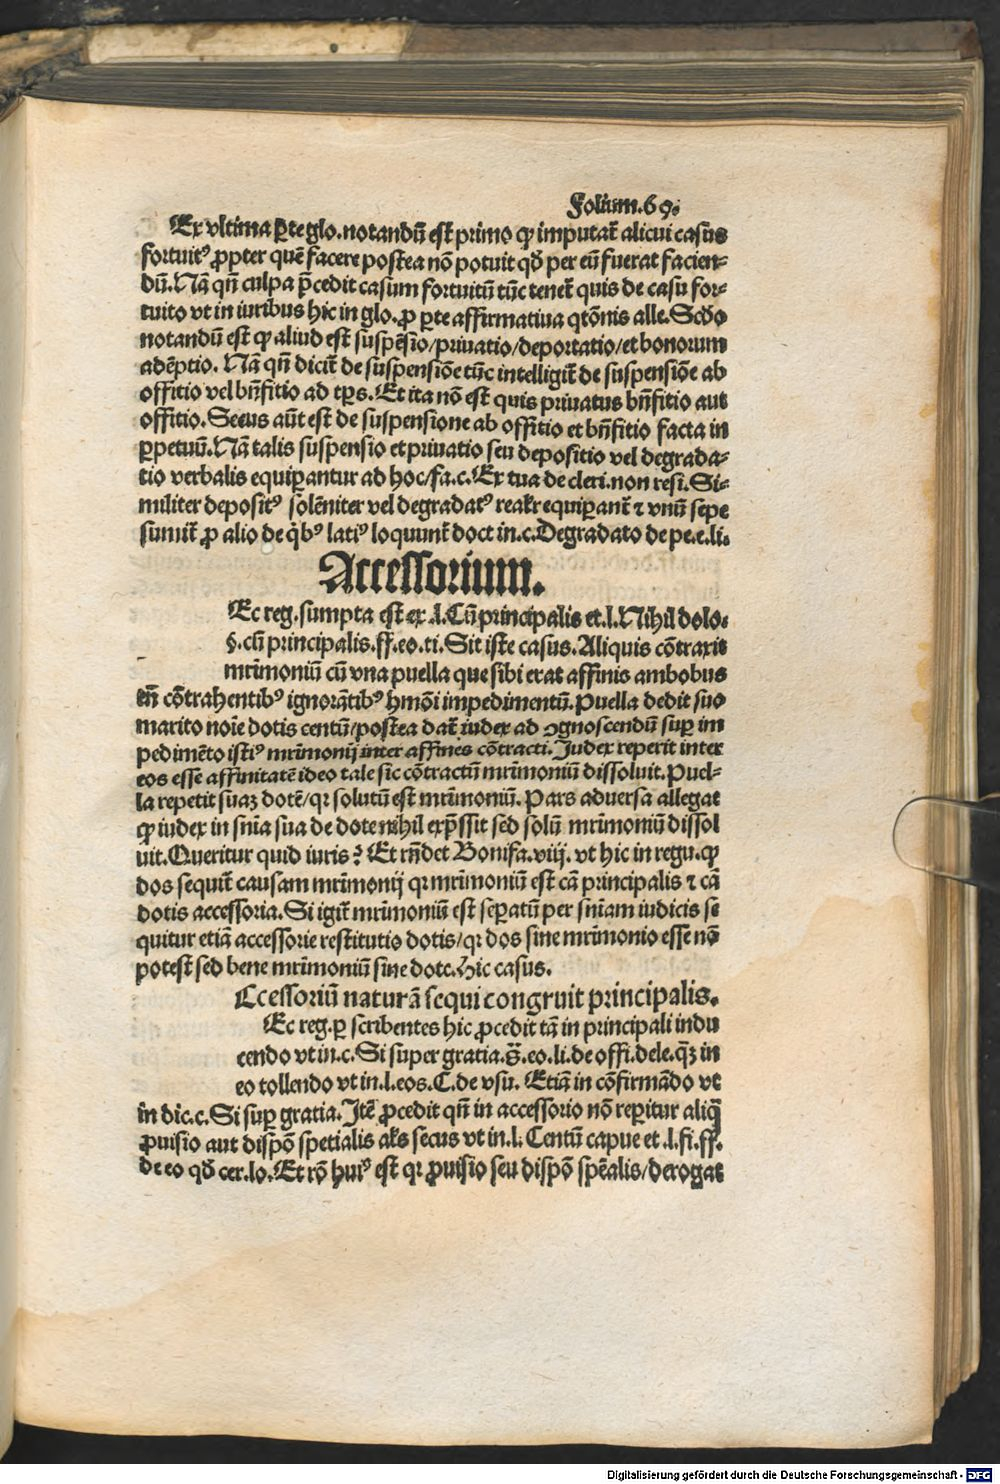 Folium.69.
Ex vltima ꝑte glo. notandũ est primo ꝙ imputat̃ alicui casus
fortuitꝰ ꝓpter quẽ facere postea nõ potuit qđ per eũ fuerat facien⸗
dũ. Nã qñ culpa p̃cedit casum fortuitũ tũc tenet̃ quis de casu for⸗
tuito vt in iuribus hic in glo. ꝓ ꝑte affirmatiua qtõnis alle. Scđo
notandũ est ꝙ aliud est suspẽsio/priuatio/deportatio/et bonorum
adẽptio. Nã qñ dicit̃ de suspensiõe tũc intelligit̃ de suspensiõe ab
offitio vel bñfitio ad tꝑs. Et ita nõ est quis priuatus bñfitio aut
offitio. Secus aũt est de suspensione ab offitio et bñfitio facta in
ꝑpetuũ. Nã talis suspensio et priuatio seu depositio vel degrada⸗
tio verbalis equiꝑantur ad hoc/fa.c. Ex tua de cleri. non resi. Si⸗
militer depositꝰ solẽniter vel degradatꝰ realr̃ equiꝑant̃ ⁊ vnũ sepe
sumit̃ ꝓ alio de q̇bꝰ latiꝰ loquunt̃ doct in.c. Degradato de pe.e.li.
Accessorium.
Ec reg. sumpta est ex .l. Cũ principalis et.l. Nihil dolo.
§. cũ principalis.ff.eo.ti. Sit iste casus. Aliquis cõtraxit
mr̃imoniũ cũ vna puella que sibi erat affinis ambobus
eñ cõtrahentibꝰ ignorãtibꝰ hmõi impedimentũ. Puella dedit suo
marito noĩe dotis centũ/postea dat̃ iudex ad ꝯgnoscendũ suꝑ im
pedimẽto istiꝰ mr̃imonij inter affines cõtracti. Iudex reperit inter
eos esse affinitatẽ ideo tale sic cõtractũ mr̃imoniũ dissoluit. Puel⸗
la repetit suaꝫ dotẽ/qꝛ solutũ est mr̃imoniũ. Pars aduersa allegat
ꝙ iudex in sñia sua de dote nihil exp̃ssit sed solũ mr̃imoniũ dissol
uit. Queritur quid iuris? Et rñdet Bonifa.viij. vt hic in regu. ꝙ
dos sequit̃ causam mr̃imonij qꝛ mr̃imoniũ est cã principalis ⁊ cã
dotis accessoria. Si igit̃ mr̃imoniũ est seꝑatũ per sñiam iudicis se
quitur etiã accessorie restitutio dotis/qꝛ dos sine mr̃imonio esse nõ
potest sed bene mr̃imoniũ sine dote. Hic casus.
Ccessoriũ naturã sequi congruit principalis.
Ec reg. ꝑ scribentes hic ꝓcedit tã in principali indu
cendo vt in.c. Si super gratia.§̃.eo.li.de offi.dele.ꝗ̃ꝫ in
eo tollendo vt in.l.eos.C.de vsu. Etiã in cõfirmãdo vt
in dic.c. Si suꝑ gratia. Itẽ ꝓcedit qñ in accessorio nõ reꝑitur aliq̃
ꝓuisio aut dispõ spetialis al's secus vt in.l. Centũ capue et .l.fi.ff.
de eo qđ cer.lo. Et rõ huiꝰ est qꝛ ꝓuisio seu dispõ spẽalis/derogat
Digitalisierung gefördert durch die Deutsche Forschungsgemeinschaft - DFG